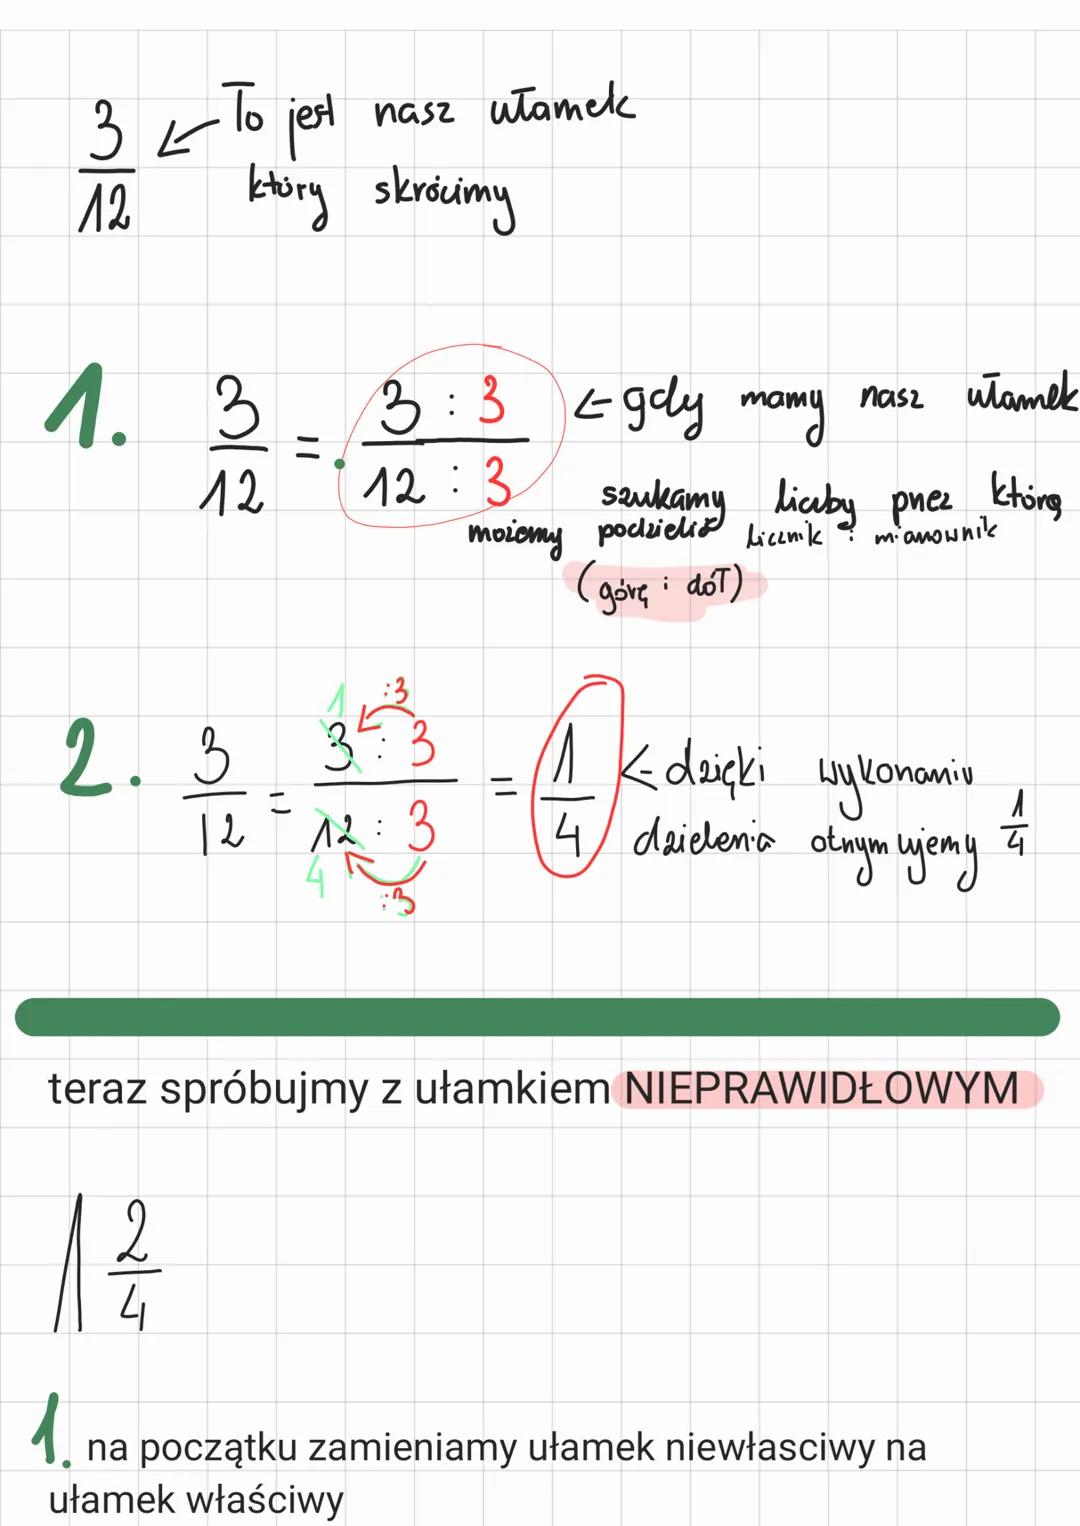 3/12 ← To jest nasz ułamek
który skrócimy
1. 3/12 = 3 : 3/12 : 3 ← gdy mamy nasz ułamek
szukamy liczby przez którą
możemy podzielić licznik i mianownik
(górę i dół)
2. 3/12 = 3 : 3/12 : 3 = 1/4 ← dzięki wykonaniu
dzielenia otrzymujemy 1/4
1 :3
4 :3
teraz spróbujmy z ułamkiem NIEPRAWIDŁOWYM
1 2/4
1. na początku zamieniamy ułamek niewłasciwy na
ułamek właściwy